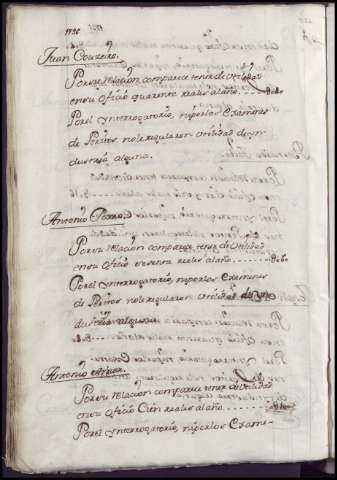 Juan Couzeiro.
Por su relacion comparece tener de Utilidad
en su Oficio quarenta reales al año
Por el Ynterrogatorio, ni por los Examenes
de Peritos no le regularon Utilidad de Yn-
dustria alguna.
Antonio
Por su relacion comparece tener de Utilidad
en su Oficio sesenta reales al año
Por el Ynterrogatorio, ni por los Examenes
de Peritos no le regularon Utilidad de Yn-
dustria alguna.
Antonio
Por su relacion comparece tener de Utilidad
en su Oficio Cien reales al año
Por el Ynterrogatorio, ni por los Exame-